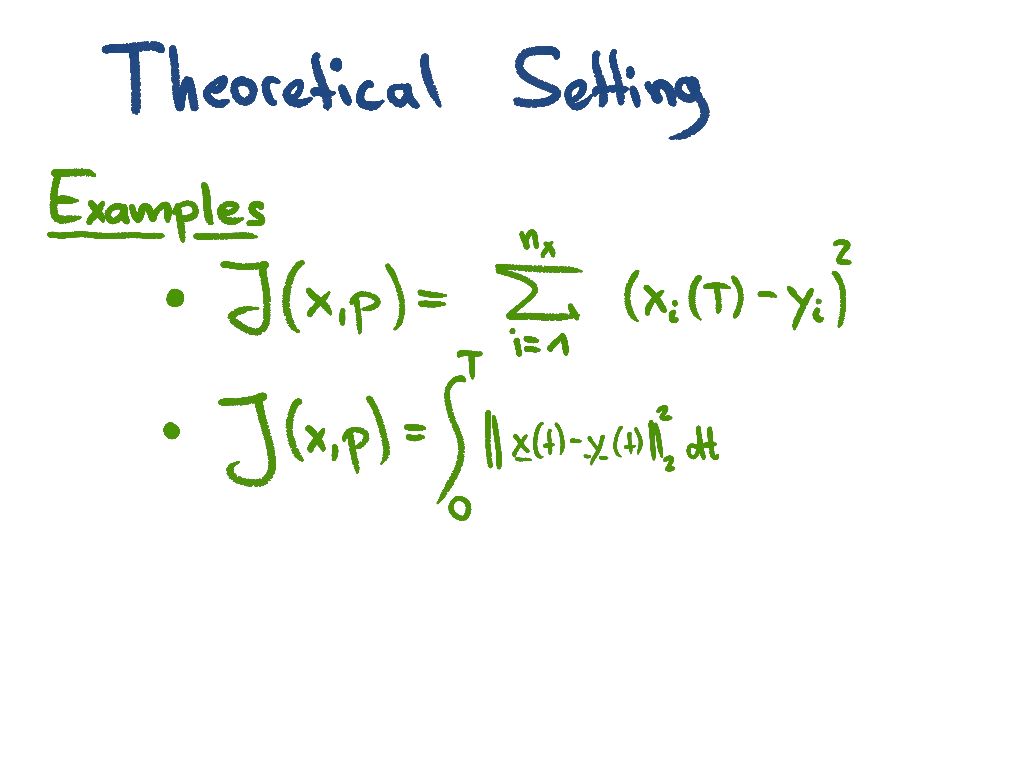 Theoretical Setting
Examples
• J(x,p) = \sum_{i=1}^{n_x} (x_i(T) - y_i)^2
• J(x,p) = \int_0^T \| \underline{x}(t) - \underline{y}(t) \|_2^2 dt